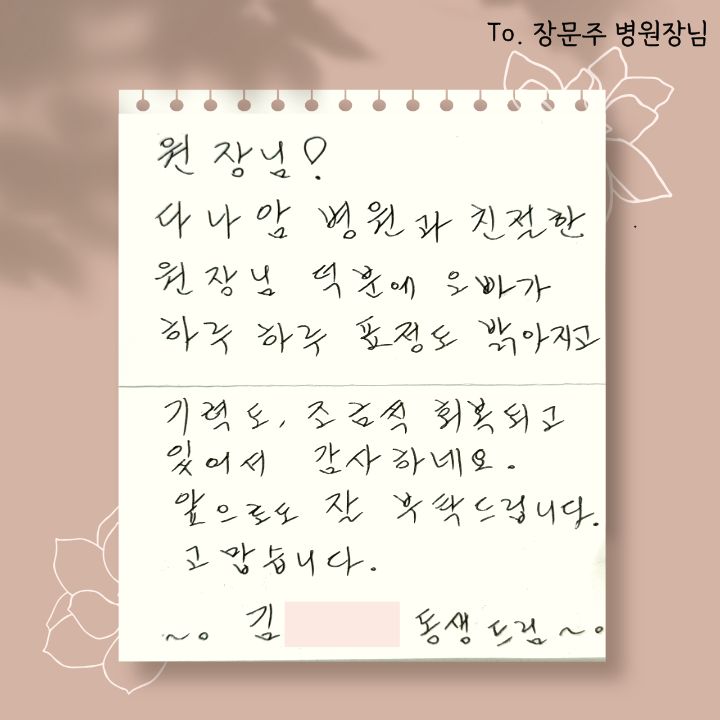 To. 장문주 병원장님
원장님!
다나암 병원과 친절한
원장님 덕분에 오빠가
하루 하루 표정도 밝아지고
기력도, 조금씩 회복되고
있어서 감사하네요.
앞으로도 잘 부탁드립니다.
고맙습니다.
~。 김 동생 드림 ~。